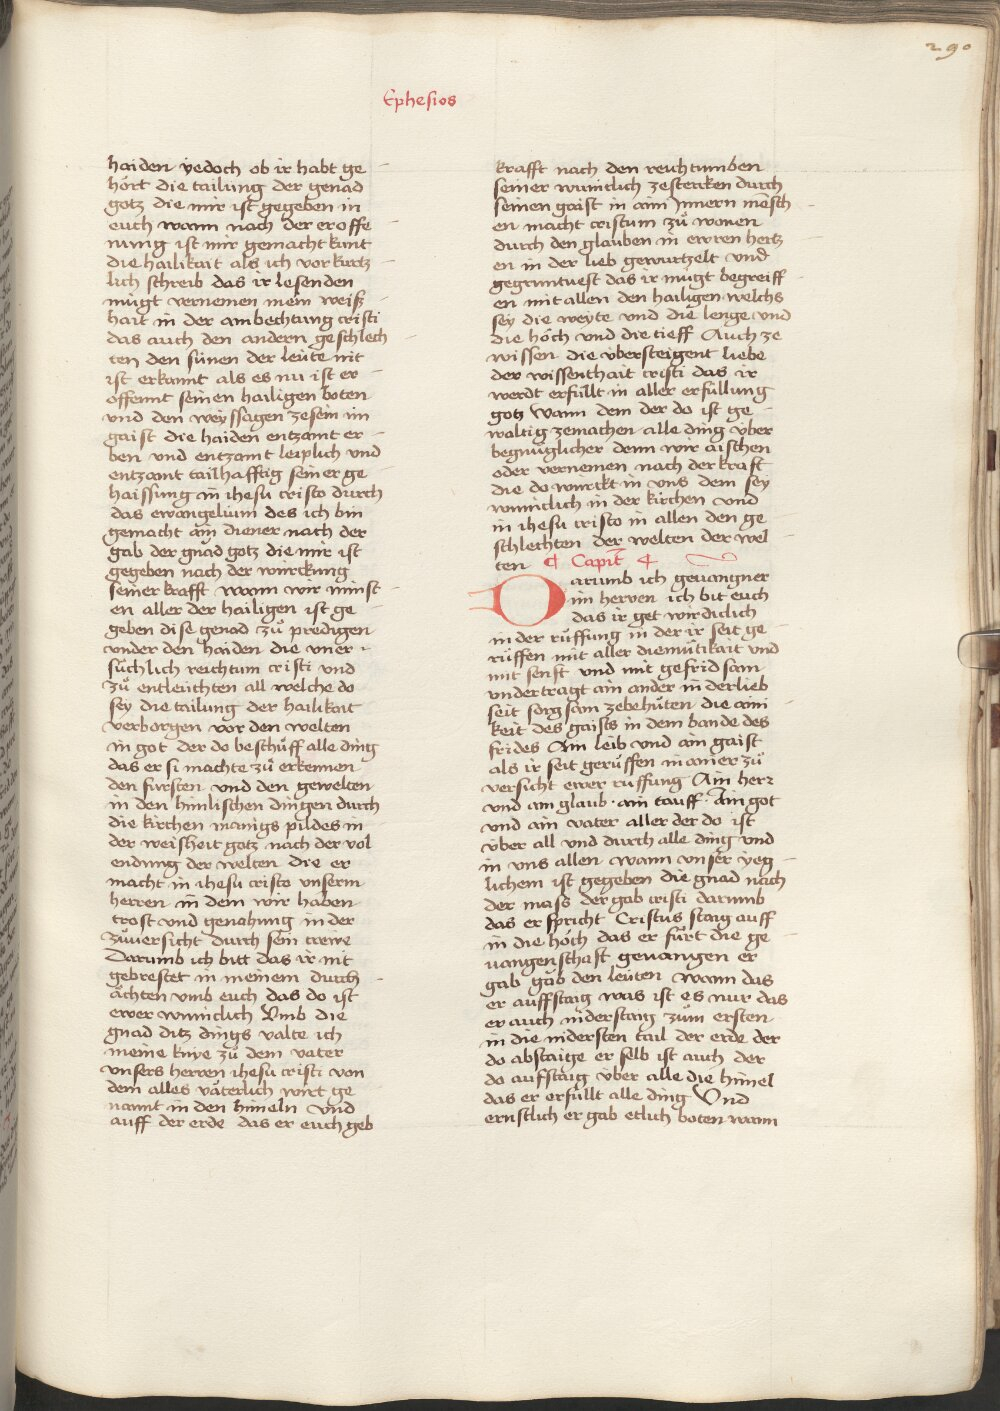 290
Ephesios
haiden yedoch ob ir habt ge
hört die tailung der genad
gotz die mir ist gegeben in
euch wann nach der eroffe
nung ist mir gemacht kunt
die hailikait als ich vor kurtz
lich schreib das ir lesenden
mügt vernemen mein weiß
hait in der ambechtung cristi
das auch den andern geschlech
ten den sünen der leüte nit
ist erkannt als es nu ist er
offennt seinen hailigen boten
vnd den weyssagen zesein im
gaist die haiden entzamt er
ben vnd entzamt leiplich vnd
entzamt tailhafftig seiner ge
haissung in ihesu cristo durch
das ewangelium des ich bin
gemacht ain diener nach der
gab der gnad gotz die mir ist
gegeben nach der würckung
seiner krafft wann wir minst
en aller der hailigen ist ge
geben dise genad zů predigen
vnder den haiden die vner
sůchlich reichtum cristi vnd
zů entleüchten all welche do
sey die tailung der hailikait
verborgen vor den welten
in got der do beschůff alle ding
das er si machte zů erkennen
den fursten vnd den gewelten
in den himlischen dingen durch
die kirchen manigs pildes in
der weisheit gotz nach der vol
endung der welten die er
macht in ihesu cristo vnserm
herren in dem wir haben
trost vnd genahung in der
zůuersicht durch sein trewe
Darumb ich bitt das ir nit
gebrestet in meinem durch
ächten vmb euch das do ist
ewer wunnclich Vmb die
gnad ditz dings valte ich
meine knye zů dem vater
vnsers herren ihesu cristi von
dem alles väterlich wirt ge
nannt in den himeln vnd
auff der erde das er euch geb
krafft nach den reichtumben
seiner wunnclich zestercken durch
seinen gaist in ainn Jnnern mēsch
en macht cristum zů wonen
durch den glauben in ewren hertz
en in der lieb gewurtzelt vnd
gegruntuest das ir mügt begreiff
en mit allen den hailigen welchs
sey die weyte vnd die lenge vnd
die höch vnd die tieff Auch ze
wissen die übersteigent liebe
der wissenthait cristi das ir
werdt erfüllt in aller erfüllung
gotz Wann dem der do ist ge
waltig zemachen alle ding über
begnüglicher denn wir aischen
oder vernemen nach der kraft
die do würckt in vns dem sey
wunnclich in der kirchen vnd
in ihesu cristo in allen den ge
schlechten der welten der wel
ten ¶ Capit̄ 4
Darumb ich geuangner
im herren ich bit euch
das ir get wirdiclich
in der růffung in der ir seit ge
růffen mit aller diemůtikait vnd
mit senft vnd mit gefridsam
vndertragt ain ander in der lieb
seit sorgsam zebehůten die ain
keit des gaists in dem bande des
frides Ain leib vnd ain gaist
als ir seit gerůffen in ainer zů
versicht ewer ruffung Ain herr
vnd ain glaub · ain tauff · Ain got
vnd ain vater aller der do ist
über all vnd durch alle ding vnd
in vns allen wann vnser yeg
lichem ist gegeben die gnad nach
der mass der gab cristi darumb
das er spricht Cristus staig auff
in die höch das er fůrt die ge
uangenschaft geuangen er
gab gab den leüten wann das
er auffstaig was ist es nur das
er auch niderstaig zům ersten
in die nidersten tail der erde der
do abstaige er selb ist auch der
do aufstaig über alle die himel
das er erfüllt alle ding Vnd
ernstlich er gab etlich boten wann